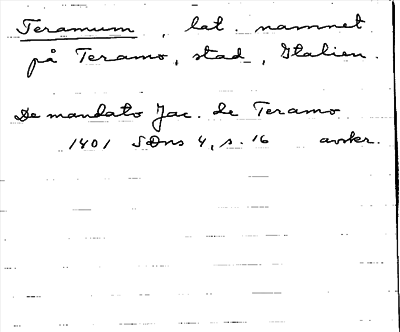 Teramum, lat. namnet
på Teramo, stad, Italien.
De mandato Jac. de Teramo
1401 SDns 4, s. 16 avskr.